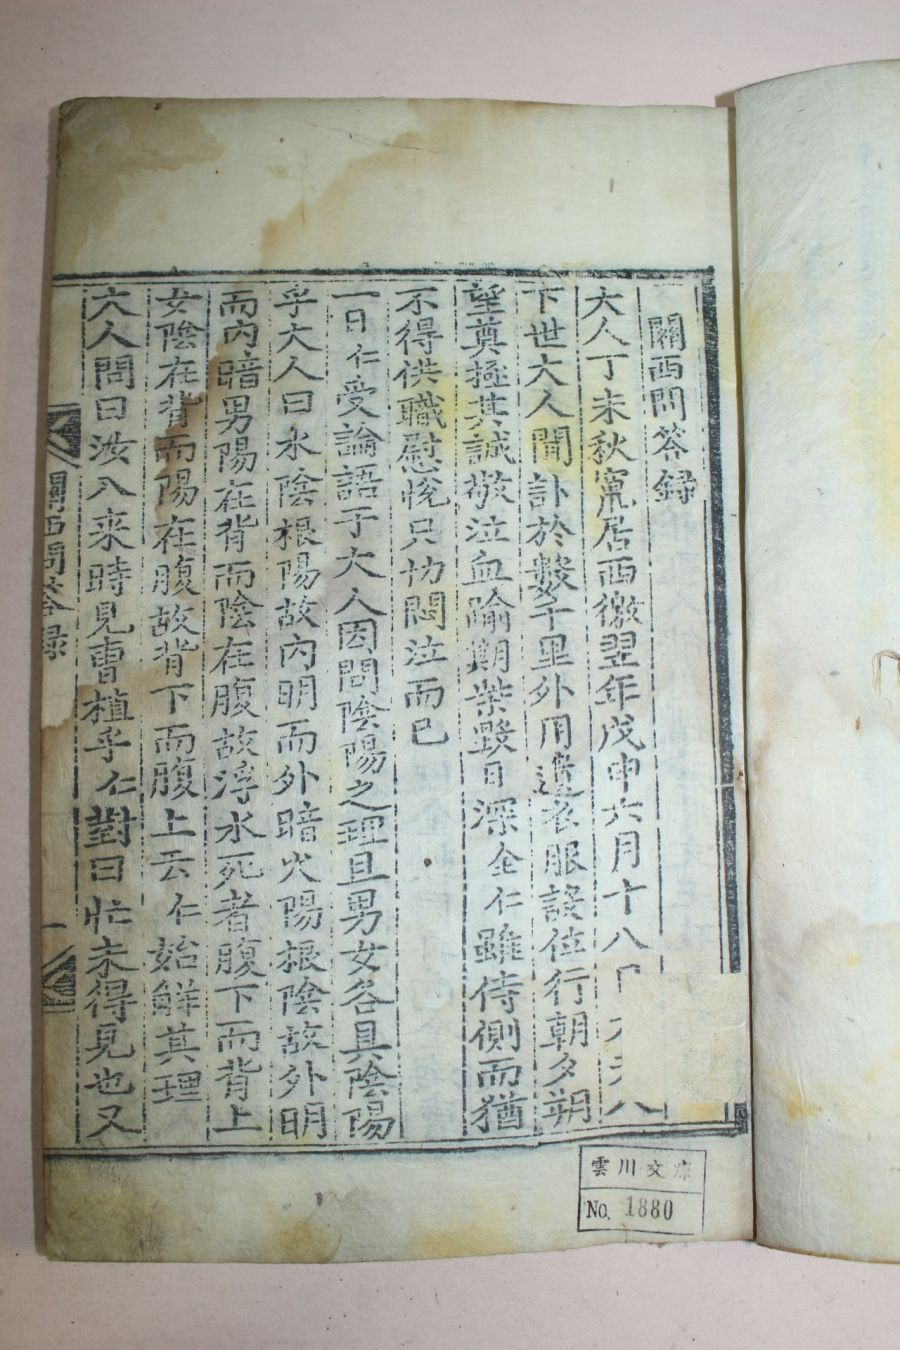 關西問答錄
大人丁未秋竄居西徼翌年戊申六月十八日大夫人
下世大人聞訃於數千里外用遺衣服設位行朝夕朔
望奠極其誠敬泣血踰期柴毀日深全仁雖侍側而猶
不得供職慰悅只切悶泣而已
一日仁受論語于大人因問陰陽之理且男女各具陰陽
乎大人曰水陰根陽故內明而外暗火陽根陰故外明
而內暗男陽在背而陰在腹故浮水死者腹下而背上
女陰在背而陽在腹故背下而腹上云仁始解其理
大人問曰汝入來時見曺植乎仁對曰忙未得見也又
關西問答錄
一
雲川文庫
No. 1880